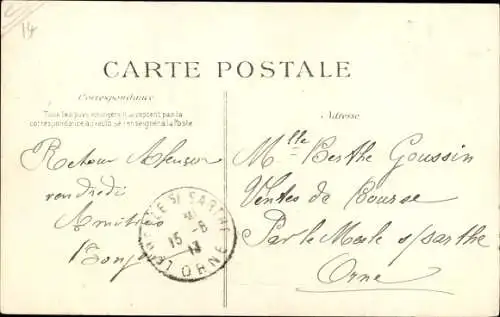 14
CARTE POSTALE
Correspondance
Tous les pays étrangers n'acceptent pas la
correspondance au recto, se renseigner à la Poste
Adresse
Retour
vendredi
Amitiés
LE MESLE S/ SARTHE
15 -8
ORNE
Mlle Berthe Goussin
Ventes de Bourse
Par le Mesle s/sarthe
Orne